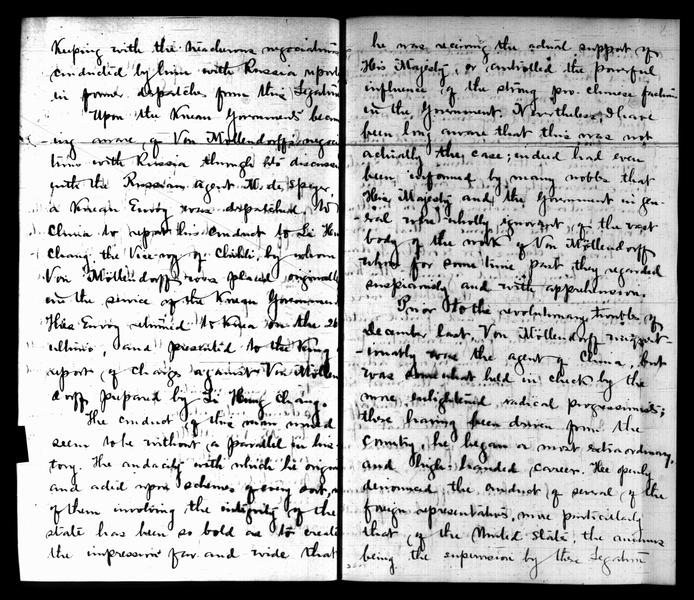 Keeping with the treacherous negociations
conducted by him with Russia report
in former dispatches from this Legation
Upon the Korean Government becom
ing aware, of Von Möllendorff's negocia
tions with Russia through his discuss
with the Russian Agent M. de Speyer,
a Korean Envoy was dispatched to
China to report his conduct to Li Hun
Chang the Vice-roy of Chihli, by whom
Von Möllendorff was placed originally
in the service of the Korean Government
This Envoy returned to Korea on the 26
ultimo, and presented to the King a
report of charges against Von Möllen
dorff prepared by Li Hung Chang.
The conduct of this man would
seem to be without a parallel in his-
tory. The audacity with which he origin
and acted upon schemes of every sort,
of them involving the integrity of the
state has been so bold as to create
the impression far and wide that
he was receiving the actual support of
His Majesty, or controlled the powerful
influence of the strong pro-chinese faction
in the Government. Nevertheless, I have
been long aware that this was not
actually the case; indeed had even
been informed by many nobles that
His Majesty and the Government in gen-
-eral were wholly ignorant of the vast
body of the work of Von Möllendorff
whom for some time past they regarded
suspiciously and with apprehension.
Prior to the revolutionary troubles of
December last, Von Möllendorff
was the agent of China, but
was somewhat held in check by the
more enlightened radical progressionists;
these having been driven from the
Country, he began a most extraordinary,
and high-handed career. He openly
denounced the conduct of several of the
foreign representatives, more particularly
that of the United States, the animus
being the supervision by these Legations